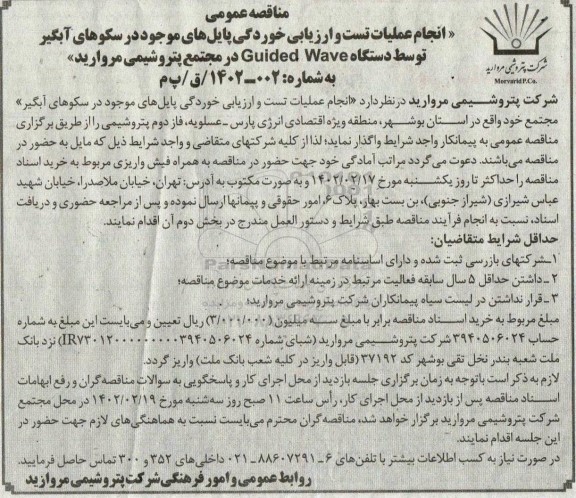 مناقصه عمومی
« انجام عملیات تست و ارزیابی خوردگی پایل‌های موجود در سکوهای آبگیر
توسط دستگاه Guided Wave در مجتمع پتروشیمی مروارید»
به شماره: ۰۰۲-۱۴۰۲/ق/پ م
شرکت پتروشیمی مروارید
Morvarid P.Co.
شرکت پتروشیمی مروارید در نظر دارد «انجام عملیات تست و ارزیابی خوردگی پایل‌های موجود در سکوهای آبگیر»
مجتمع خود واقع در استان بوشهر، منطقه ویژه اقتصادی انرژی پارس - عسلویه، فاز دوم پتروشیمی را از طریق برگزاری
مناقصه عمومی به پیمانکار واجد شرایط واگذار نماید؛ لذا از کلیه شرکتهای متقاضی و واجد شرایط ذیل که مایل به حضور در
مناقصه می‌باشند، دعوت می‌گردد مراتب آمادگی خود جهت حضور در مناقصه به همراه فیش واریزی مربوط به خرید اسناد
مناقصه را حداکثر تا روز یکشنبه مورخ ۱۴۰۲/۰۲/۱۷ و به صورت مکتوب به آدرس: تهران، خیابان ملاصدرا، خیابان شهید
عباس شیرازی (شیراز جنوبی)، بن بست بهار، پلاک ۶، امور حقوقی و پیمانها ارسال نموده و پس از مراجعه حضوری و دریافت
اسناد، نسبت به انجام فرآیند مناقصه طبق شرایط و دستور العمل مندرج در بخش دوم آن اقدام نمایند.
حداقل شرایط متقاضیان:
۱-شرکتهای بازرسی ثبت شده و دارای اساسنامه مرتبط با موضوع مناقصه؛
۲-داشتن حداقل ۵ سال سابقه فعالیت مرتبط در زمینه ارائه خدمات موضوع مناقصه؛
۳-قرار نداشتن در لیست سیاه پیمانکاران شرکت پتروشیمی مروارید؛
مبلغ مربوط به خرید اسناد مناقصه برابر با مبلغ سه میلیون (۳/۰۰۰/۰۰۰) ریال تعیین و می‌بایست این مبلغ به شماره
حساب ۳۹۴۰۵۰۶۰۲۴ شرکت پتروشیمی مروارید (شبای شماره IR۷۳۰۱۲۰۰۰۰۰۰۰۰۰۳۹۴۰۵۰۶۰۲۴) نزد بانک
ملت شعبه بندر نخل تقی بوشهر کد ۳۷۱۹۲ (قابل واریز در کلیه شعب بانک ملت) واریز گردد.
لازم به ذکر است باتوجه به زمان برگزاری جلسه بازدید از محل اجرای کار و پاسخگویی به سوالات مناقصه‌گران و رفع ابهامات
اسناد مناقصه پس از بازدید از محل اجرای کار، رأس ساعت ۱۱ صبح روز سه‌شنبه مورخ ۱۴۰۲/۰۲/۱۹ در محل مجتمع
شرکت پتروشیمی مروارید برگزار خواهد شد، مناقصه‌گران محترم می‌بایست نسبت به هماهنگی‌های لازم جهت حضور در
این جلسه اقدام نمایند.
در صورت نیاز به کسب اطلاعات بیشتر با تلفن‌های ۶-۸۸۶۰۷۲۹۱-۰۲۱ داخلی‌های ۳۵۲ و ۳۰۰ تماس حاصل فرمایید.
روابط عمومی و امور فرهنگی شرکت پتروشیمی مروارید